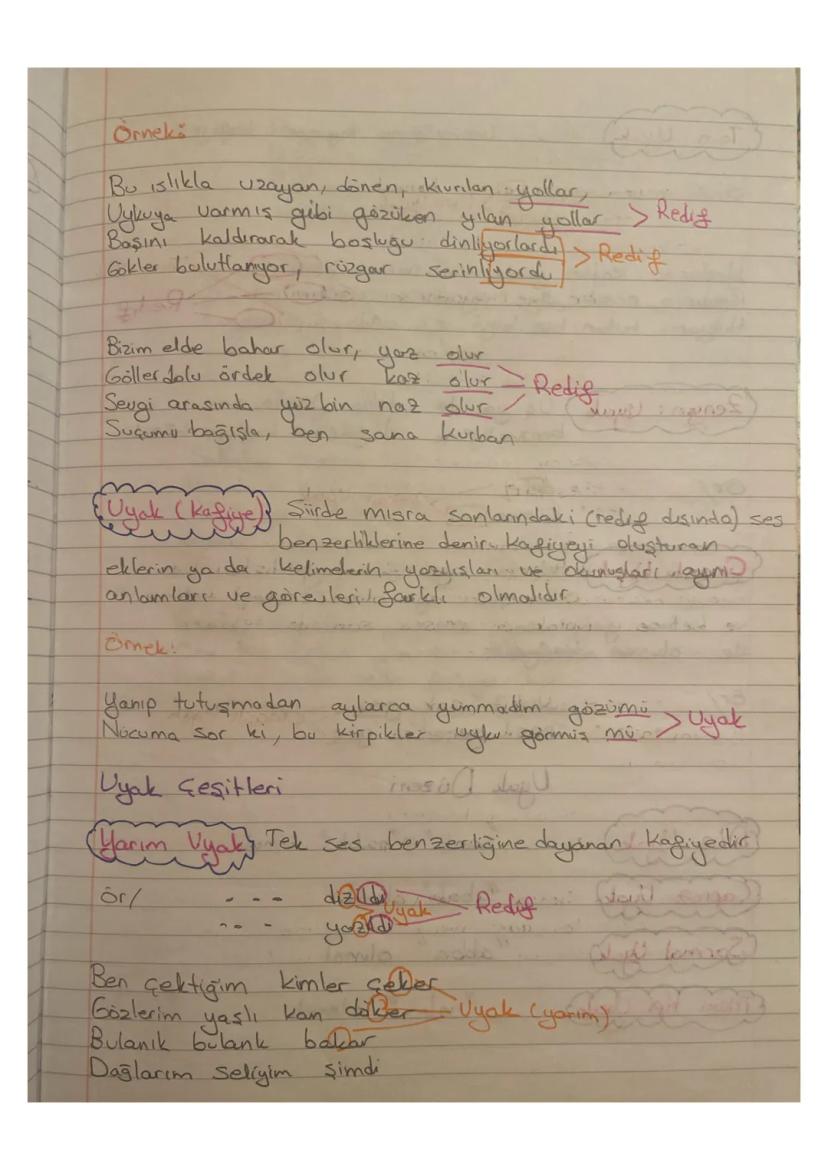 Örnek:
Bu ıslıkla uzayan, dönen, kıvrılan yollar,
Uykuya varmış gibi gözüken yılan yollar > Redif
Başını kaldırarak boşluğu dinliyorlardı > Redif
Gökler bulutlanıyor, rüzgar serinliyordu
Bizim elde bahar olur, yaz olur
Göller dolu ördek olur kaz olur > Redif
Sevgi arasında yüz bin naz olur
Suçumu bağışla, ben sana kurban
Uyak (kafiye) Şiirde mısra sonlarındaki (redif dışında) ses
benzerliklerine denir. Kafiyeyi oluşturan
eklerin ya da kelimelerin yazılışları ve okunuşları aynı
anlamları ve görevleri farklı olmalıdır
Örnek:
Yanıp tutuşmadan aylarca yummadım gözümü > Uyak
Nücuma sor ki, bu kirpikler uyku görmüş mü
Uyak Çeşitleri
Yarım Uyak Tek ses benzerliğine dayanan kafiyedir
ör/ - - - dizildi Uyak Redif
- - - yazıldı
Ben çektiğim kimler çeker
Gözlerim yaşlı kan döker Uyak (yarım)
Bulanık bulanık bakar
Dağların seliyim şimdi